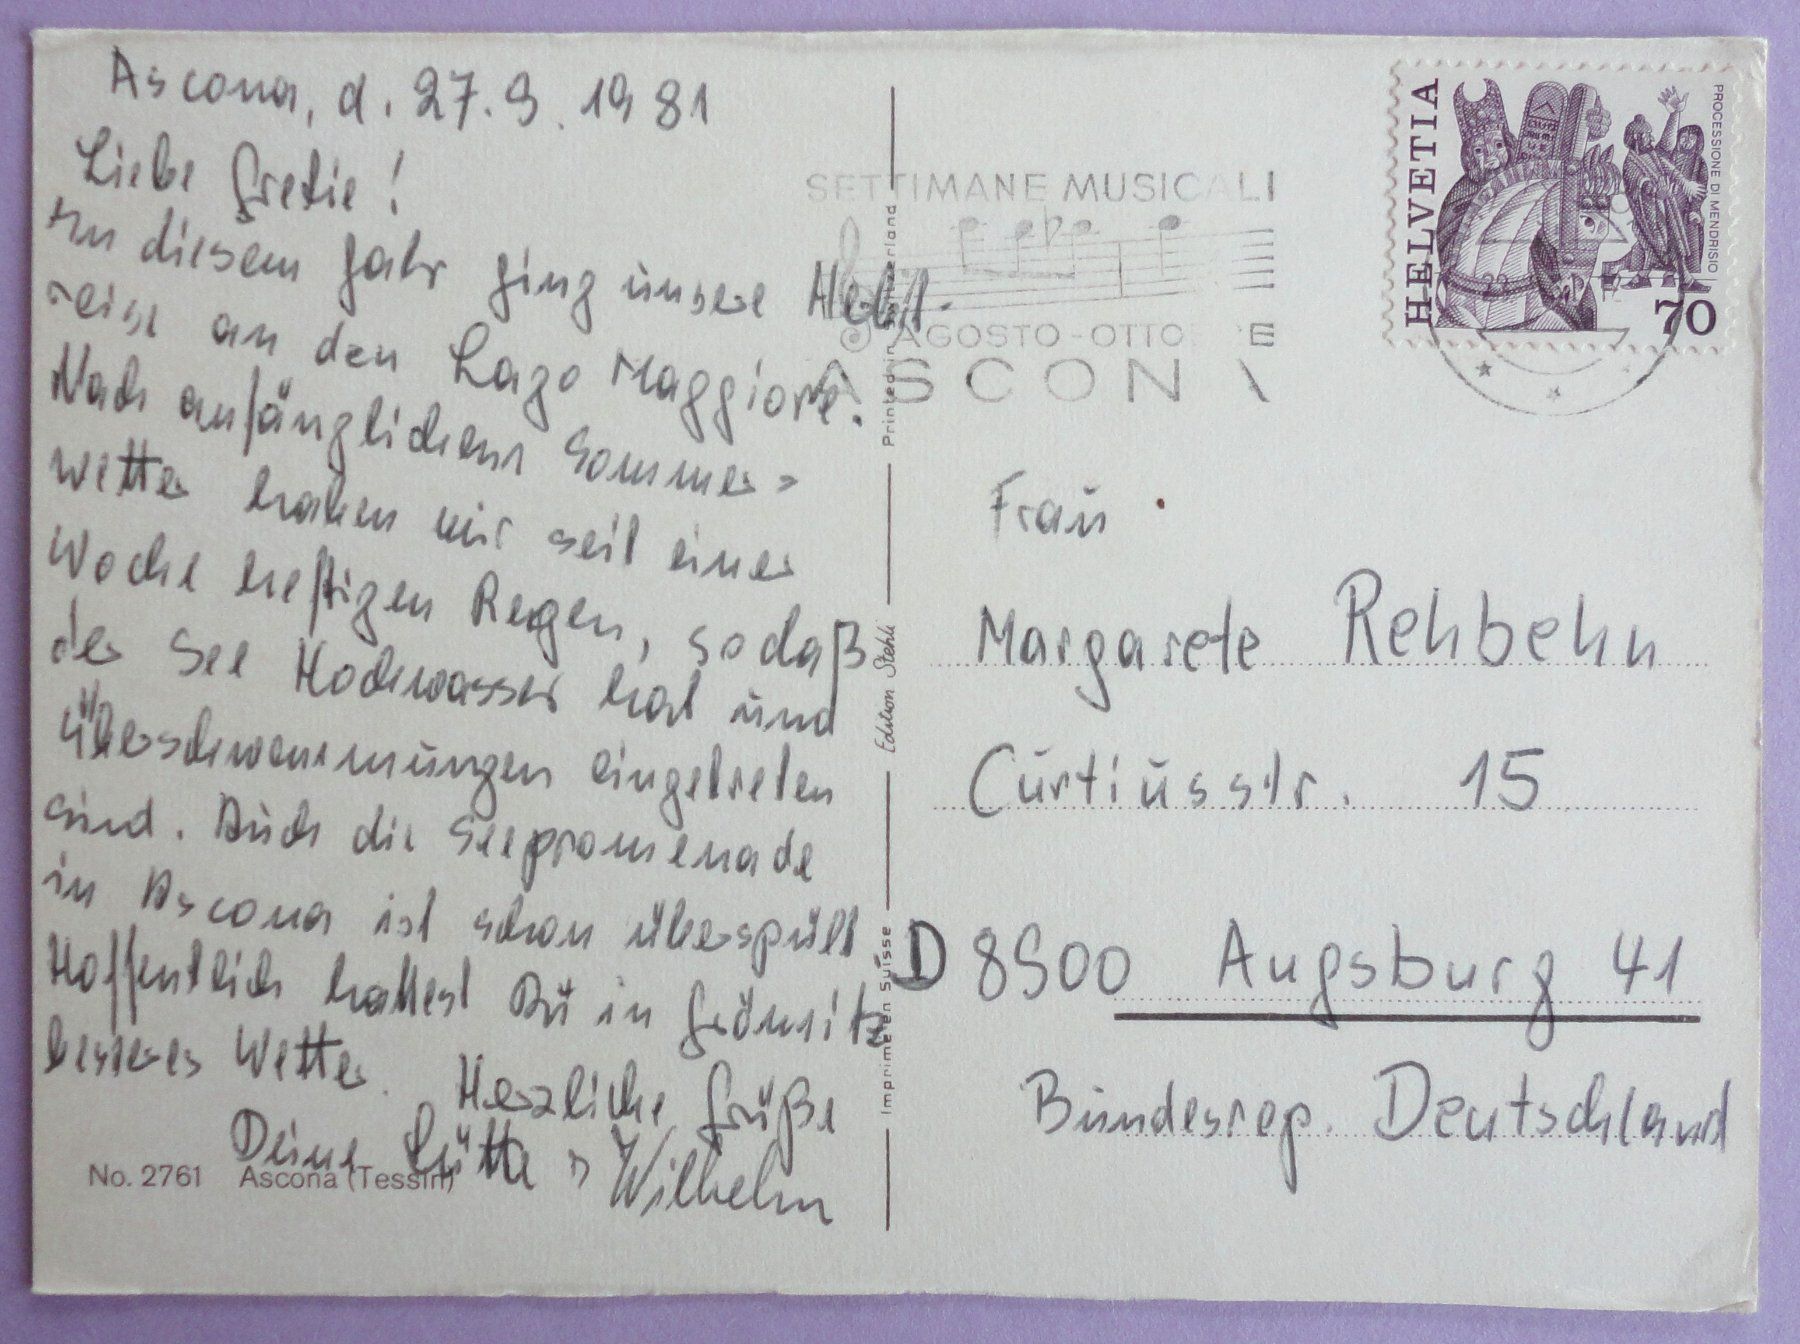 Ascona, d. 27.9.1981
Liebe Gretie!
In diesem Jahr ging unsere Herbst-
reise an den Lago Maggiore.
Nach anfänglichem Sommer=
wetter haben wir seit einer
Woche heftigen Regen, sodaß
der See Hochwasser hat und
Überschwemmungen eingetreten
sind. Auch die Seepromenade
in Ascona ist schon überspült
Hoffentlich hattest Du in Grömitz
besseres Wetter. Herzliche Grüße
Deine Lütta u Wilhelm
No. 2761 Ascona (Tessin)
Imprimé en Suisse
Edition Stehli
Printed in Switzerland
SETTIMANE MUSICALI
AGOSTO - OTTOBRE
ASCONA
HELVETIA
PROCESSIONE DI MENDRISIO
70
Frau
Margarete Rehbehn
Curtiusstr. 15
D 8900 Augsburg 41
Bundesrep. Deutschland